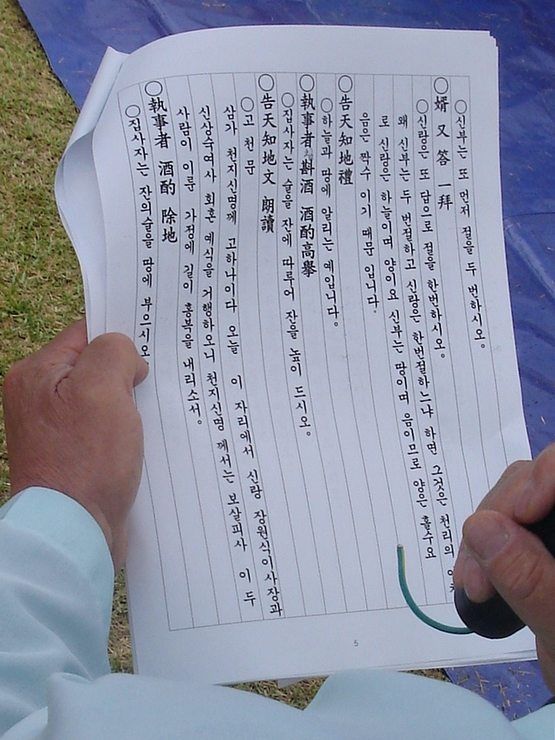 ○신부는 또 먼저 절을 두 번하시오.
○壻 又 答 一 拜
○신랑은 또 답으로 절을 한번하시오.
왜 신부는 두 번절하고 신랑은 한번절하느냐 하면 그것은 천리의
로 신랑은 하늘이며 양이요 신부는 땅이며 음이므로 양은 홀수요
음은 짝수 이기 때문 입니다.
○告天知地禮
○하늘과 땅에 알리는 예입니다.
○執事者 斟酒 酒酌高擧
○집사자는 술을 잔에 따루어 잔을 높이 드시오.
○告天知地文 朗讀
○고 천 문
삼가 천지신명께 고하나이다 오늘 이 자리에서 신랑 장원식이사장과
신상숙여사 회혼 예식을 거행하오니 천지신명 께서는 보살피사 이 두
사람이 이룬 가정에 길이 홍복을 내리소서.
○執事者 酒酌 除地
○집사자는 잔의술을 땅에 부으시오
5